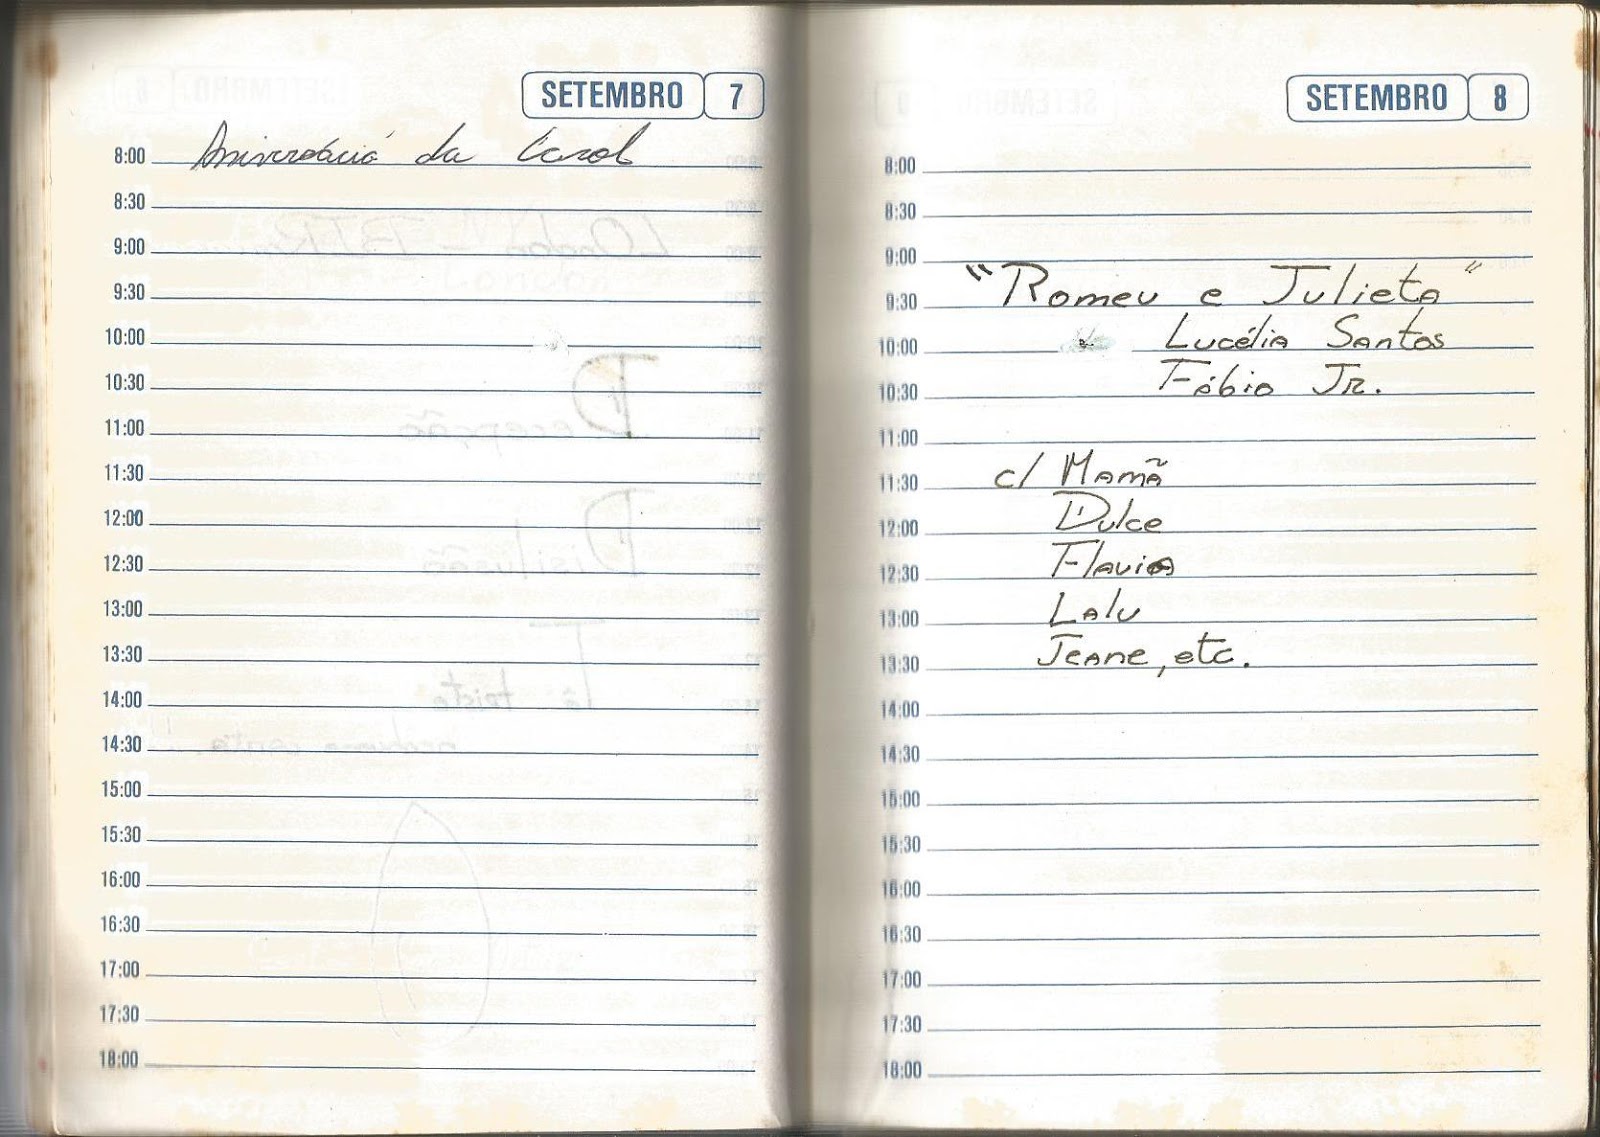 SETEMBRO 7
8:00 Aniversário da Carol
8:30
9:00
9:30
10:00
10:30
11:00
11:30
12:00
12:30
13:00
13:30
14:00
14:30
15:00
15:30
16:00
16:30
17:00
17:30
18:00
SETEMBRO 8
8:00
8:30
9:00
9:30 "Romeu e Julieta"
10:00 Lucélia Santos
10:30 Fábio Jr.
11:00
11:30 c/ Mamã
12:00 Dulce
12:30 Flavia
13:00 Lalu
13:30 Jeane, etc.
14:00
14:30
15:00
15:30
16:00
16:30
17:00
17:30
18:00